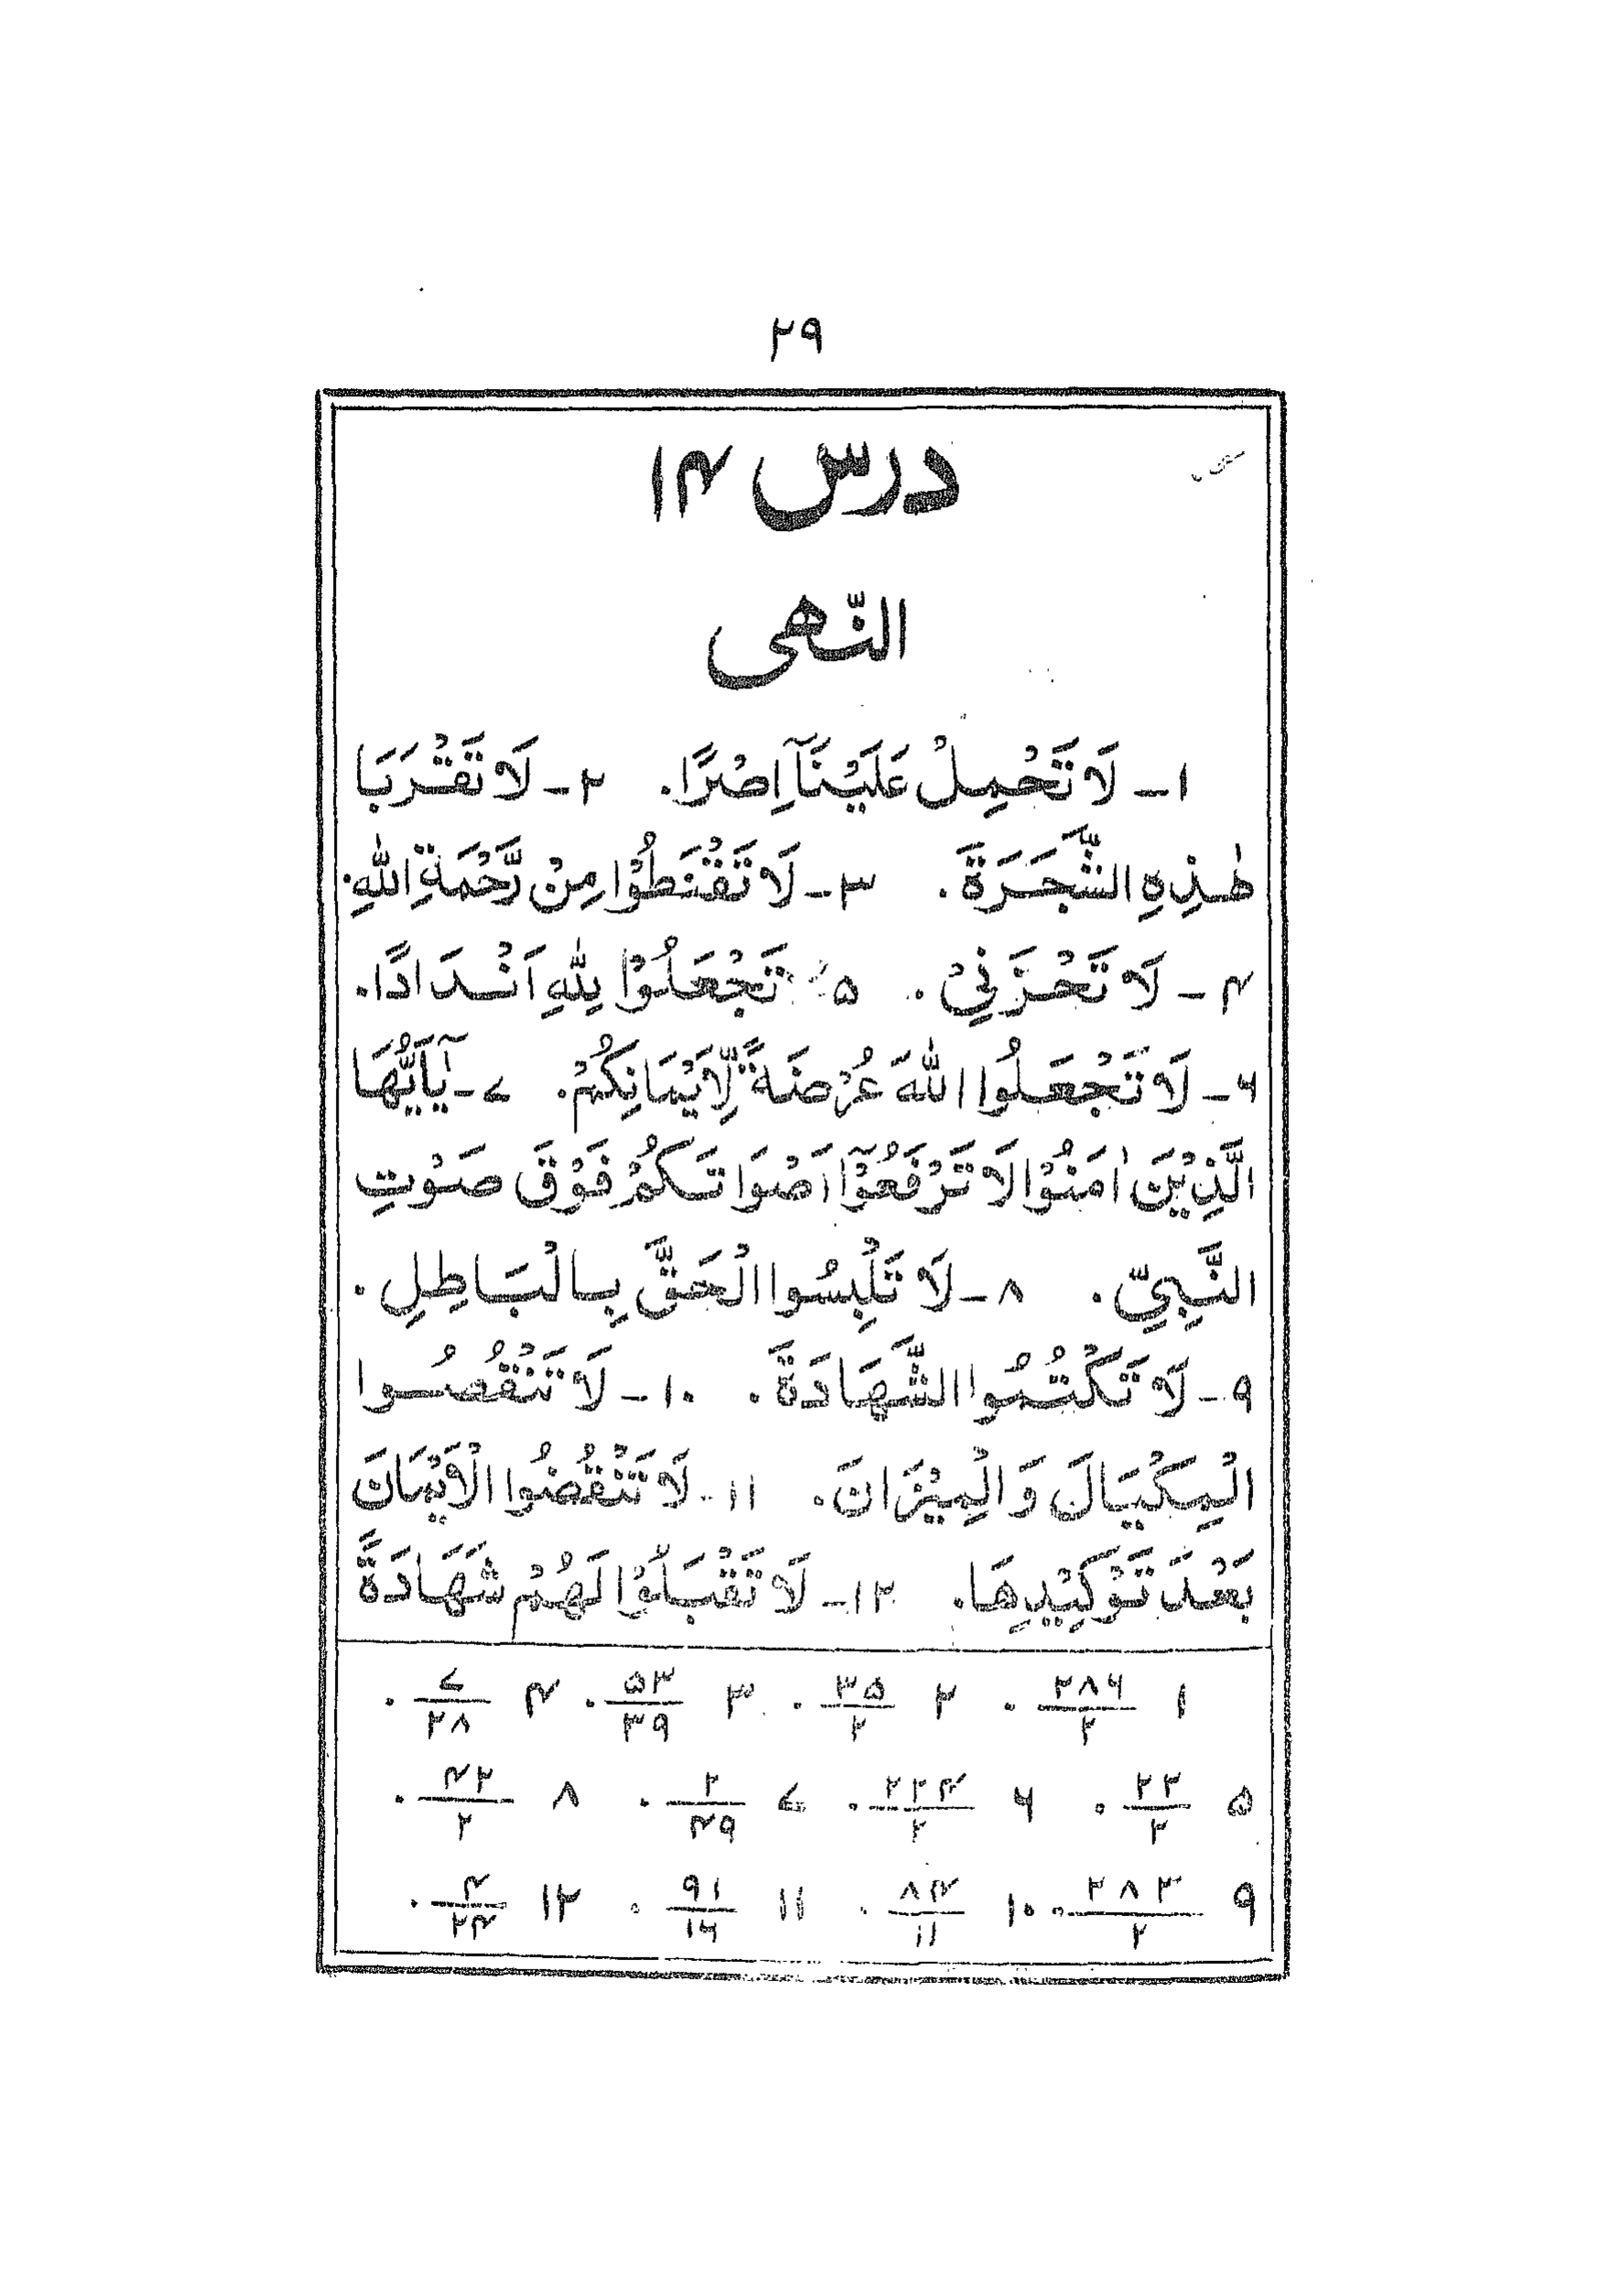 ۲۹
درس ۱۴
النّهى
۱ـ لَا تَحْمِلْ عَلَيْنَآ اِصْرًا. ۲ـ لَا تَقْرَبَا
هٰذِهِ الشَّجَرَةَ. ۳ـ لَا تَقْنَطُوْا مِنْ رَّحْمَةِ اللّٰهِ.
۴ـ لَا تَحْزَنِيْ. ۵ تَجْعَلُوْا لِلّٰهِ اَنْدَادًا.
۶ـ لَا تَجْعَلُوا اللّٰهَ عُرْضَةً لِّاَيْمَانِكُمْ. ۷ـ يٰٓاَيُّهَا
الَّذِيْنَ اٰمَنُوْا لَا تَرْفَعُوْٓا اَصْوَاتَكُمْ فَوْقَ صَوْتِ
النَّبِيِّ. ۸ـ لَا تَلْبِسُوا الْحَقَّ بِالْبَاطِلِ.
۹ـ لَا تَكْتُمُوا الشَّهَادَةَ. ۱۰ـ لَا تَنْقُصُوا
الْمِكْيَالَ وَالْمِيْزَانَ. ۱۱ـ لَا تَنْقُضُوا الْاَيْمَانَ
بَعْدَ تَوْكِيْدِهَا. ۱۲ـ لَا تَقْبَلُوْا لَهُمْ شَهَادَةً
۱ ۲۸۶/۲. ۲ ۳۵/۲. ۳ ۵۳/۳۹. ۴ ۷/۲۸.
۵ ۲۲/۲. ۶ ۲۲۴/۲. ۷ ۲/۴۹. ۸ ۴۲/۲.
۹ ۲۸۳/۲. ۱۰ ۸۴/۱۱. ۱۱ ۹۱/۱۶. ۱۲ ۴/۲۴.